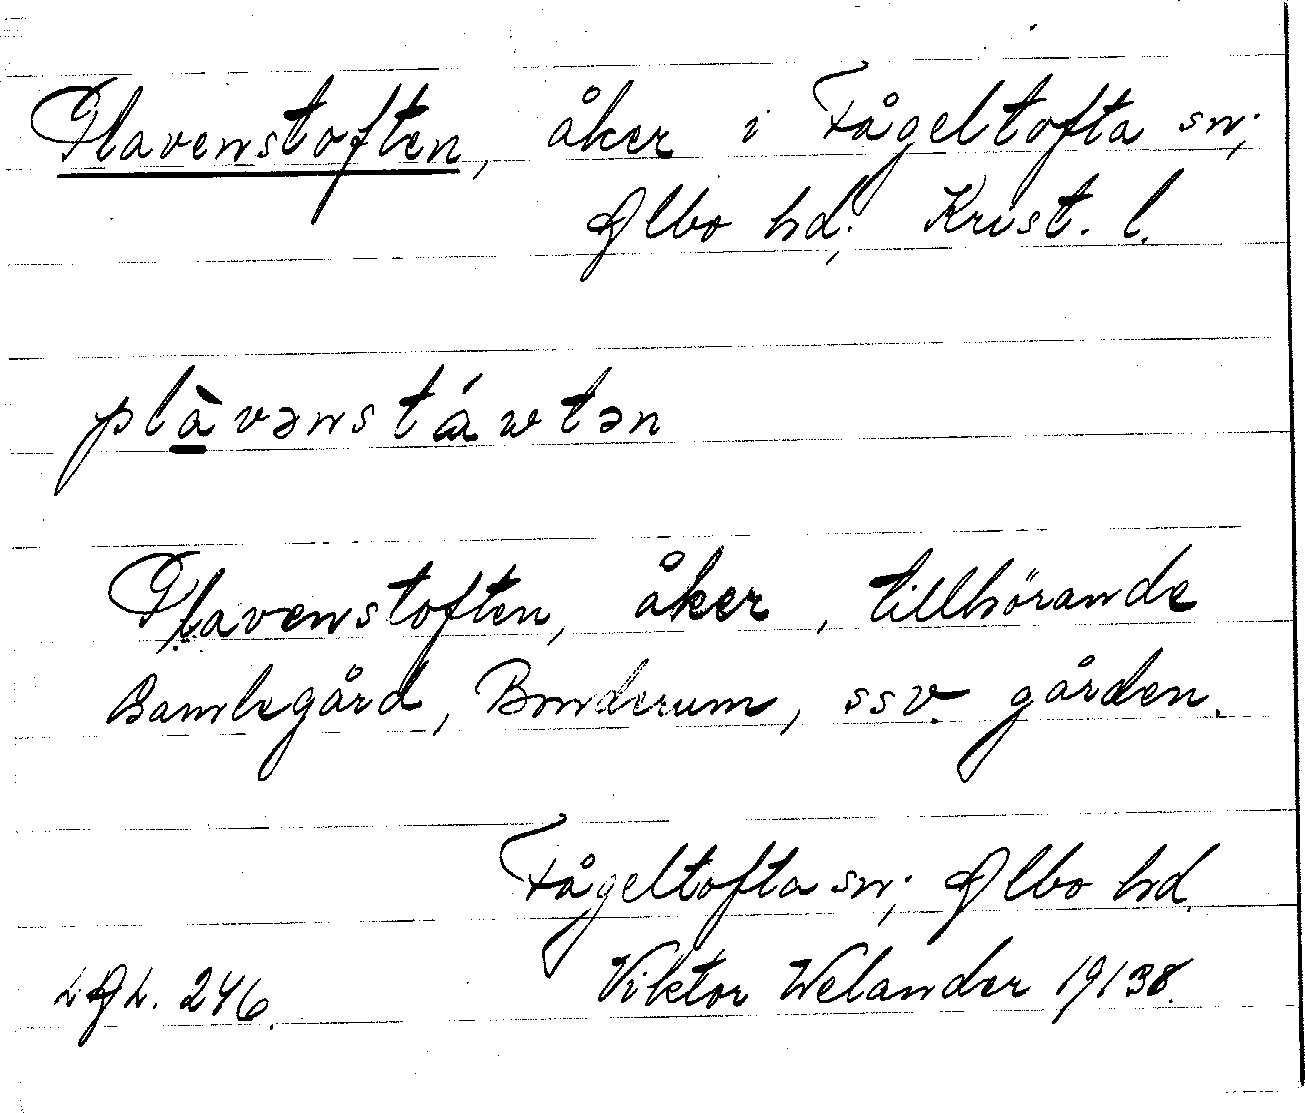 Plavenstoften, åker i Fågeltofta sn;
Albo hd; Krist. l.
plàvənstáwtən
Plavenstoften, åker, tillhörande
Bamlegård, Bonderum, ssv. gården.
Fågeltofta sn; Albo hd.
LAL. 246. Viktor Welander 19138.